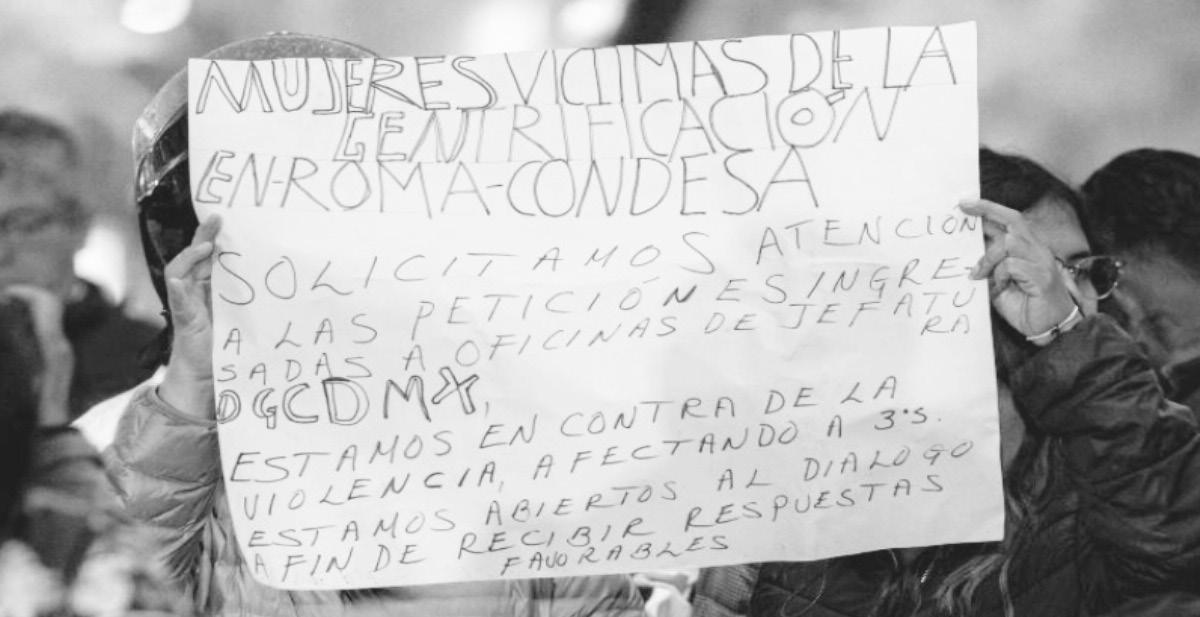 MUJERES VICTIMAS DE LA
GENTRIFICACIÓN
EN-ROMA-CONDESA
SOLICITAMOS ATENCION
A LAS PETICIÓNES INGRE-
SADAS A OFICINAS DE JEFATU
RA
DGCDMX,
ESTAMOS EN CONTRA DE LA
VIOLENCIA, AFECTANDO A 3°S.
ESTAMOS ABIERTOS AL DIALOGO
A FIN DE RECIBIR RESPUESTAS
FAVORABLES